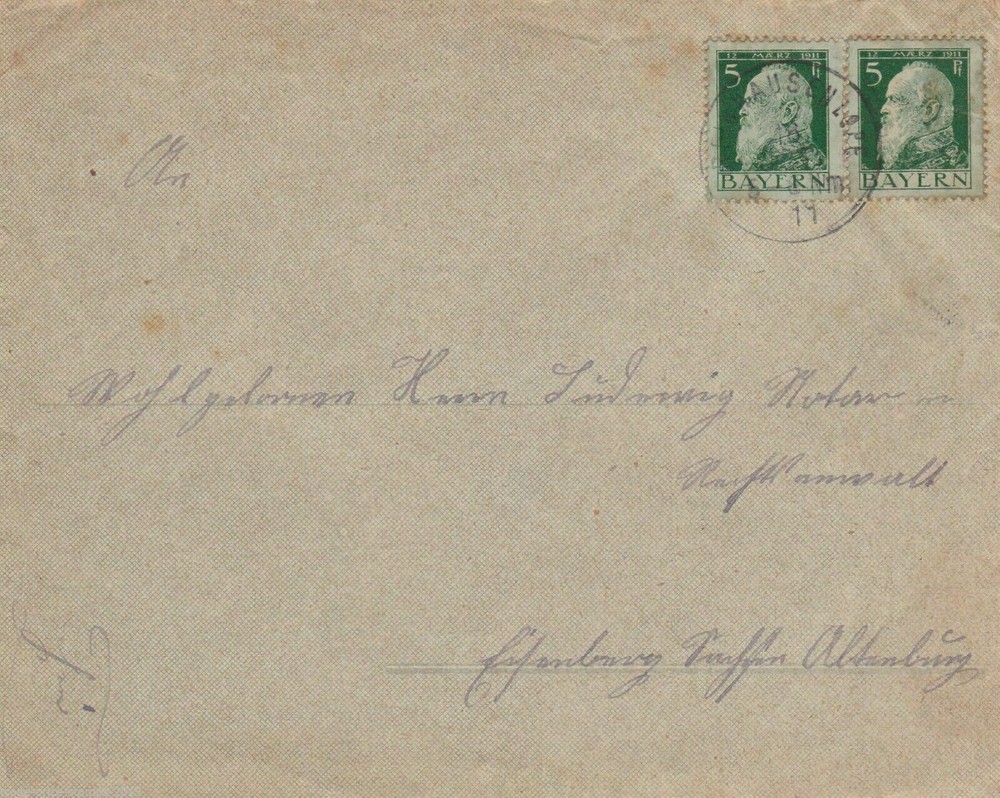 12 MÆRZ 1911
5 Pf
BAYERN
12 MÆRZ 1911
5 Pf
BAYERN
11
An
Wohlgebornen Herrn Ludewig Notar
Rechtsanwalt
Eisenberg Sachsen Altenburg